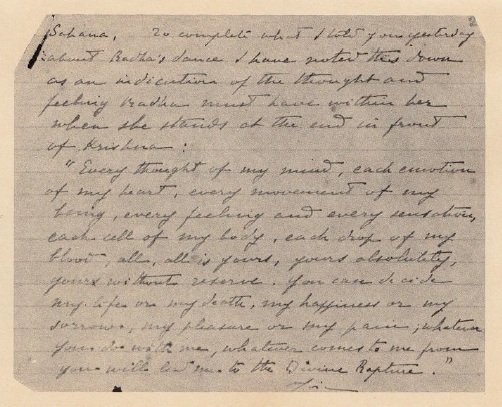 Sahana, To complete what I told you yesterday
about Radha's dance I have noted this down
as an indication of the thought and
feeling Radha must have within her
when she stands at the end in front
of Krishna :
"Every thought of my mind, each emotion
of my heart, every movement of my
being, every feeling and every sensation,
each cell of my body, each drop of my
blood, all, all is yours, yours absolutely,
yours without reserve. You can decide
my life or my death, my happiness or my
sorrow, my pleasure or my pain ; whatever
you do with me, whatever comes to me from
you will lead me to the Divine Rapture."